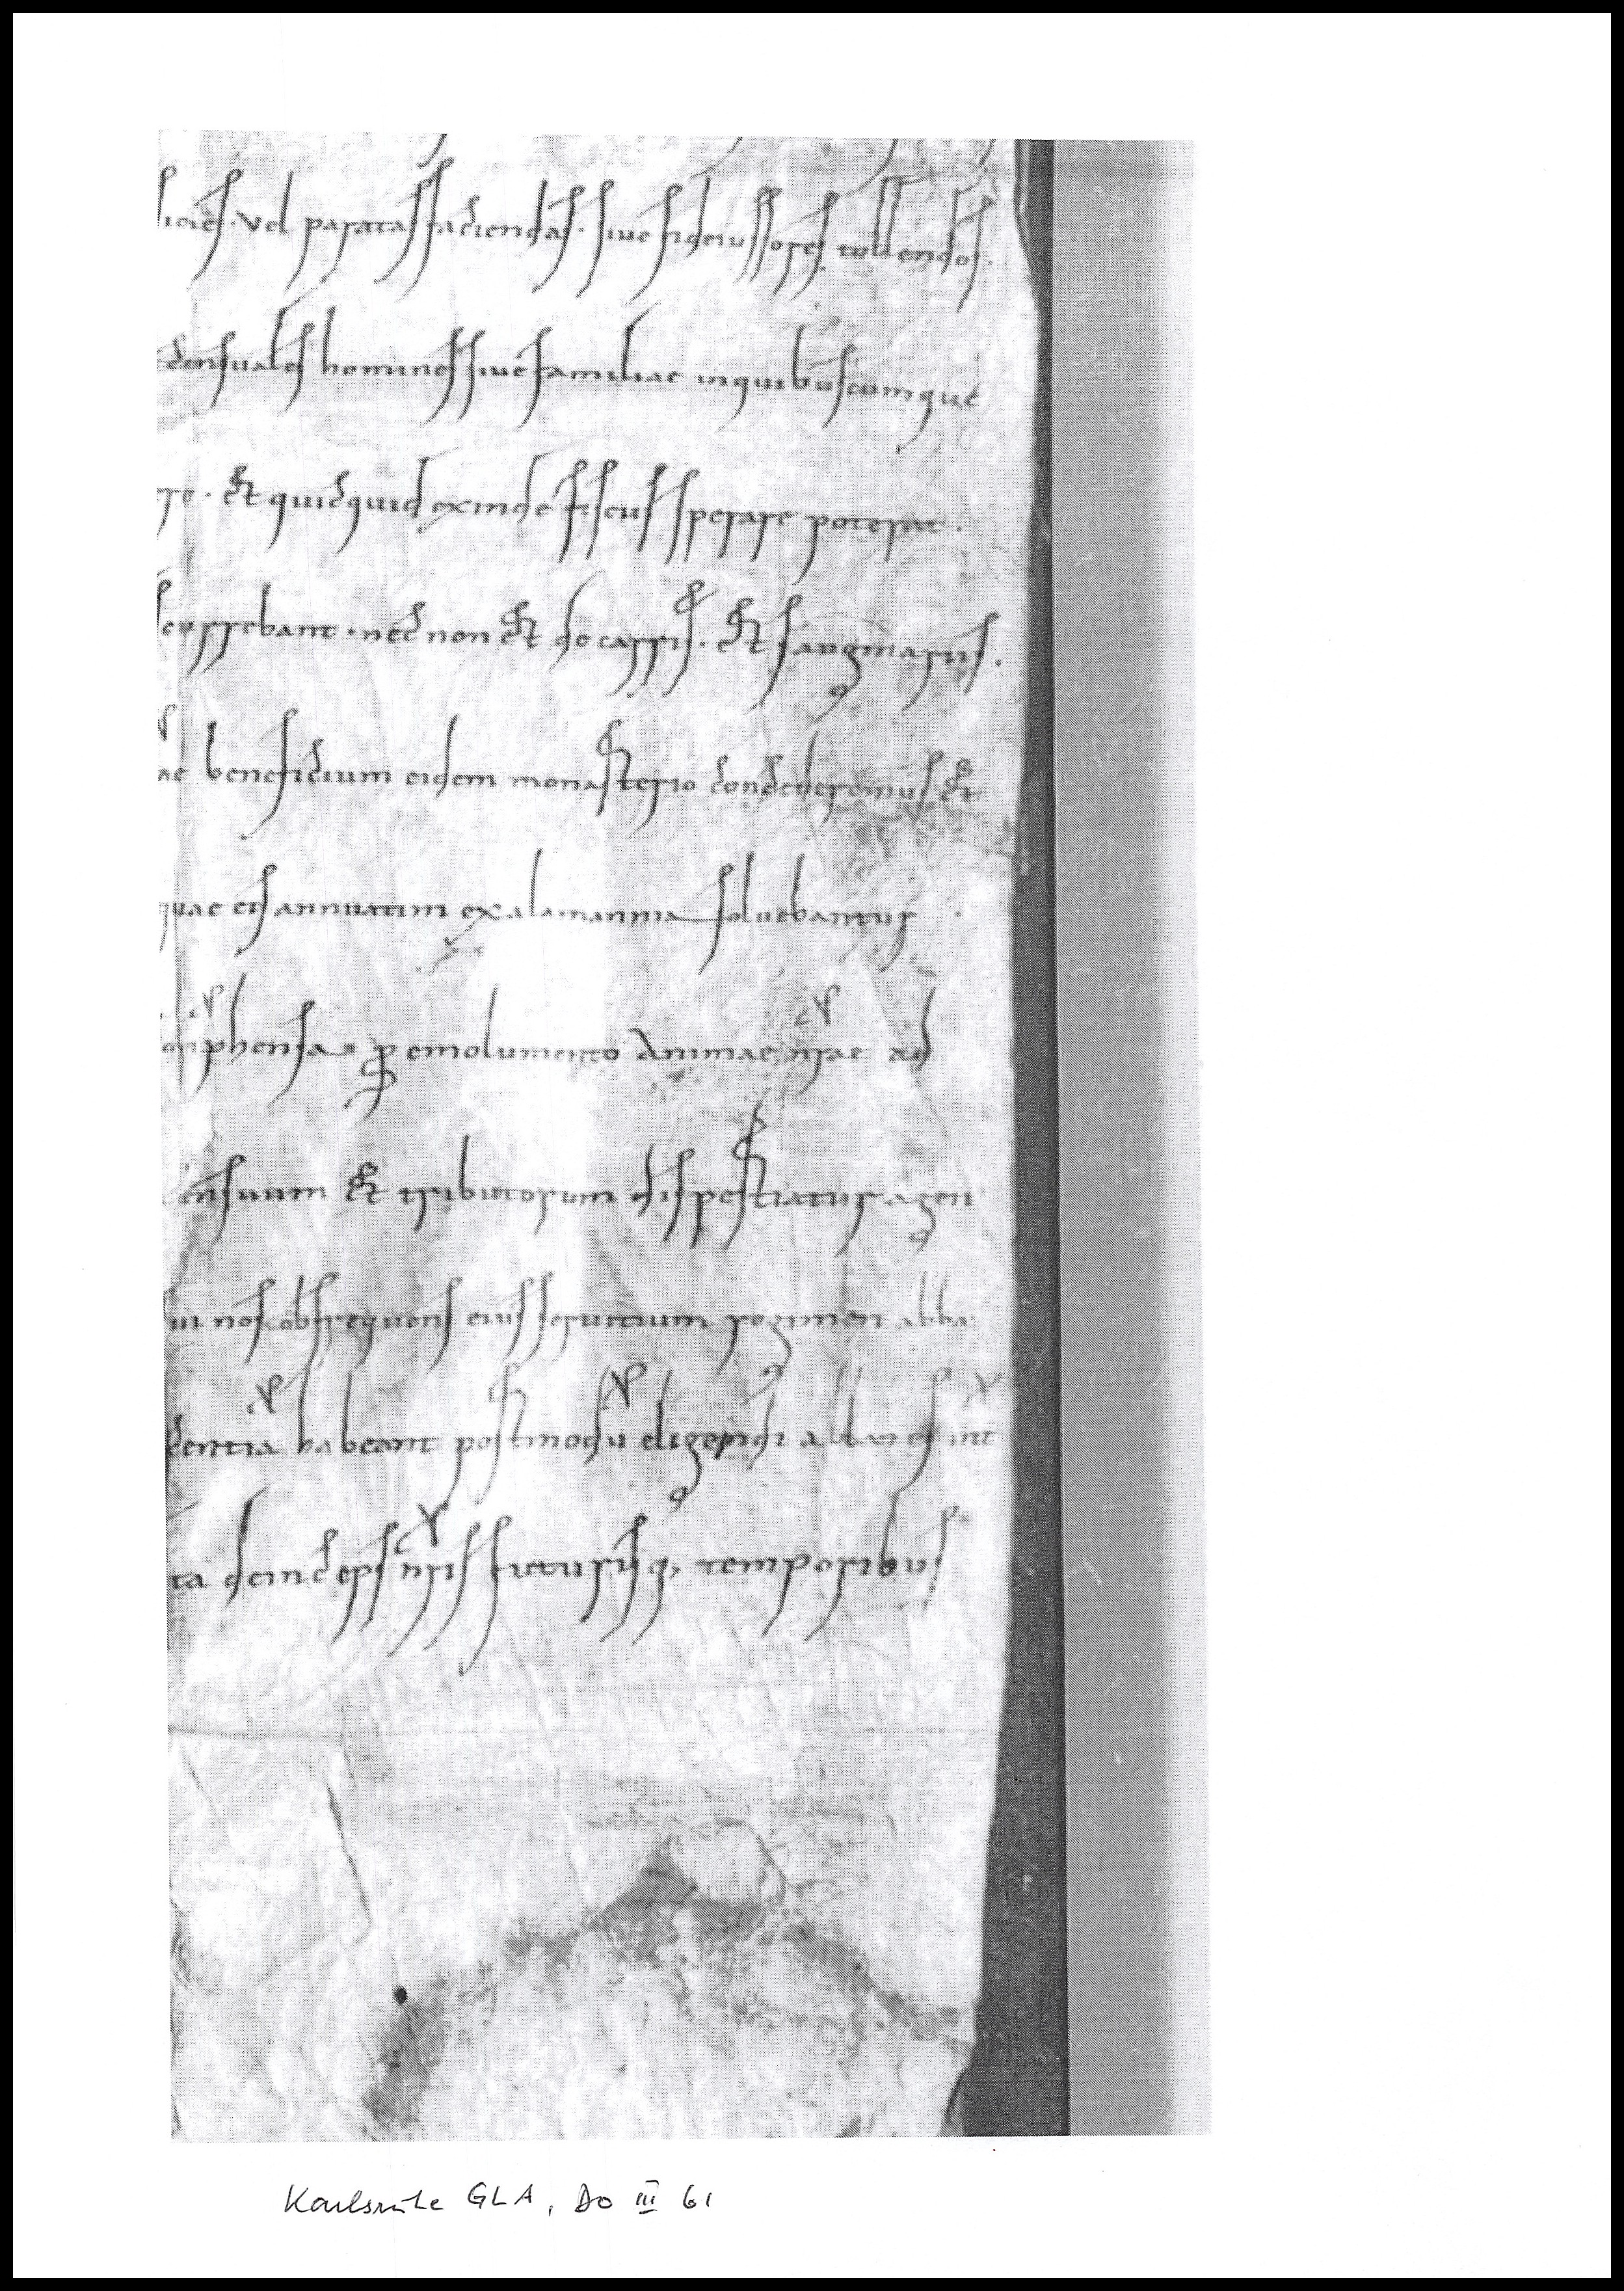 vel paratas faciendas. sive fideiussores tollendos.
censuales homines sive familiae inquibuscumque
&quicquid exinde fiscus sperare poterat.
currebant. nec non & decarris. & sauginariis.
ae beneficium eidem monasterio concederemus &
quae eis annuatim exalamannia solvebantur
p emolumento animae nrae ad
censuum & tributorum dispertiatur agen
nos obsequens eius servitium regimen abba
centia habeant postmodu eligendi abbates int
ta deinceps nris futurisq, temporibus
Karlsruhe GLA, DO III 61